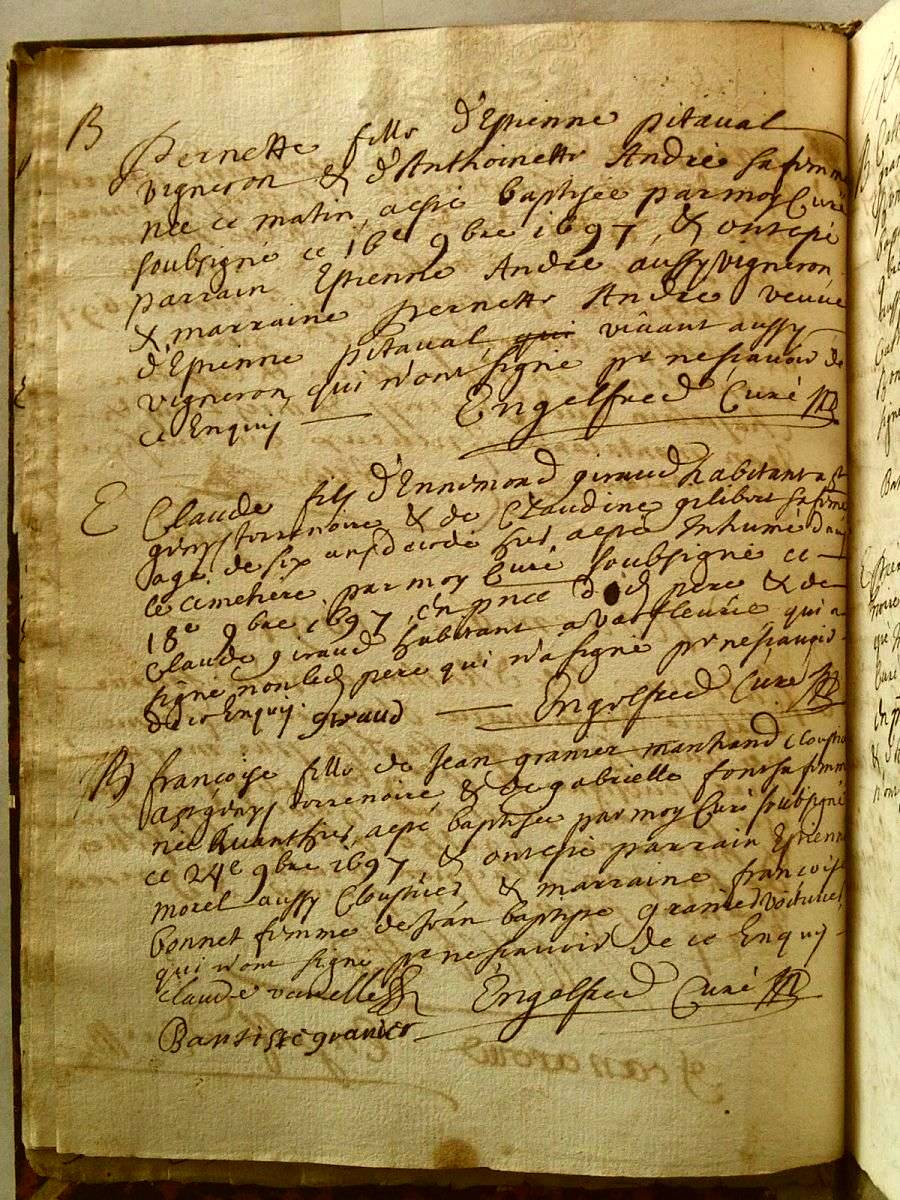 B
Pernette fille d'Estienne pitaval
vigneron & d'Anthoinette André sa femme
née ce matin, aesté baptisée par moy Curé
soubsigné ce 16e 9bre 1697, & ont esté
parrain Estienne André aussy vigneron
& marraine Pernette André veuve
d'Estienne pitaval, qui vivant aussy
vigneron, qui n'ont signé pr ne scavoir de
ce Enquis Engelfred Curé
E
Claude fils d'Ennemond giraud habitant a St
genys terrenoire & de Claudine gilibert sa feme
agé de six ans decedé hier, aesté Inhumé dans
le cimetiere par moy Curé soubsigné ce
18e 9bre 1697, en pnce dud pere & de
Claude giraud habitant a valfleurie qui a
signé non led pere qui n'a signé pr ne scavoir
de ce Enquis. giraud Engelfred Curé
B
françoise fille de Jean granier marchand cloustr
a St genys terrenoire & de gabrielle font sa femme
née avanthier, aesté baptisée par moy Curé soubsigné
ce 24e 9bre 1697, & ont esté parrain Estienne
morel aussy Cloustier, & marraine francoise
bonnet femme de Jean baptiste granier voiturier,
qui n'ont signé pr ne scavoir de ce Enquis
Claude Engelfred Curé
Bantiste granier